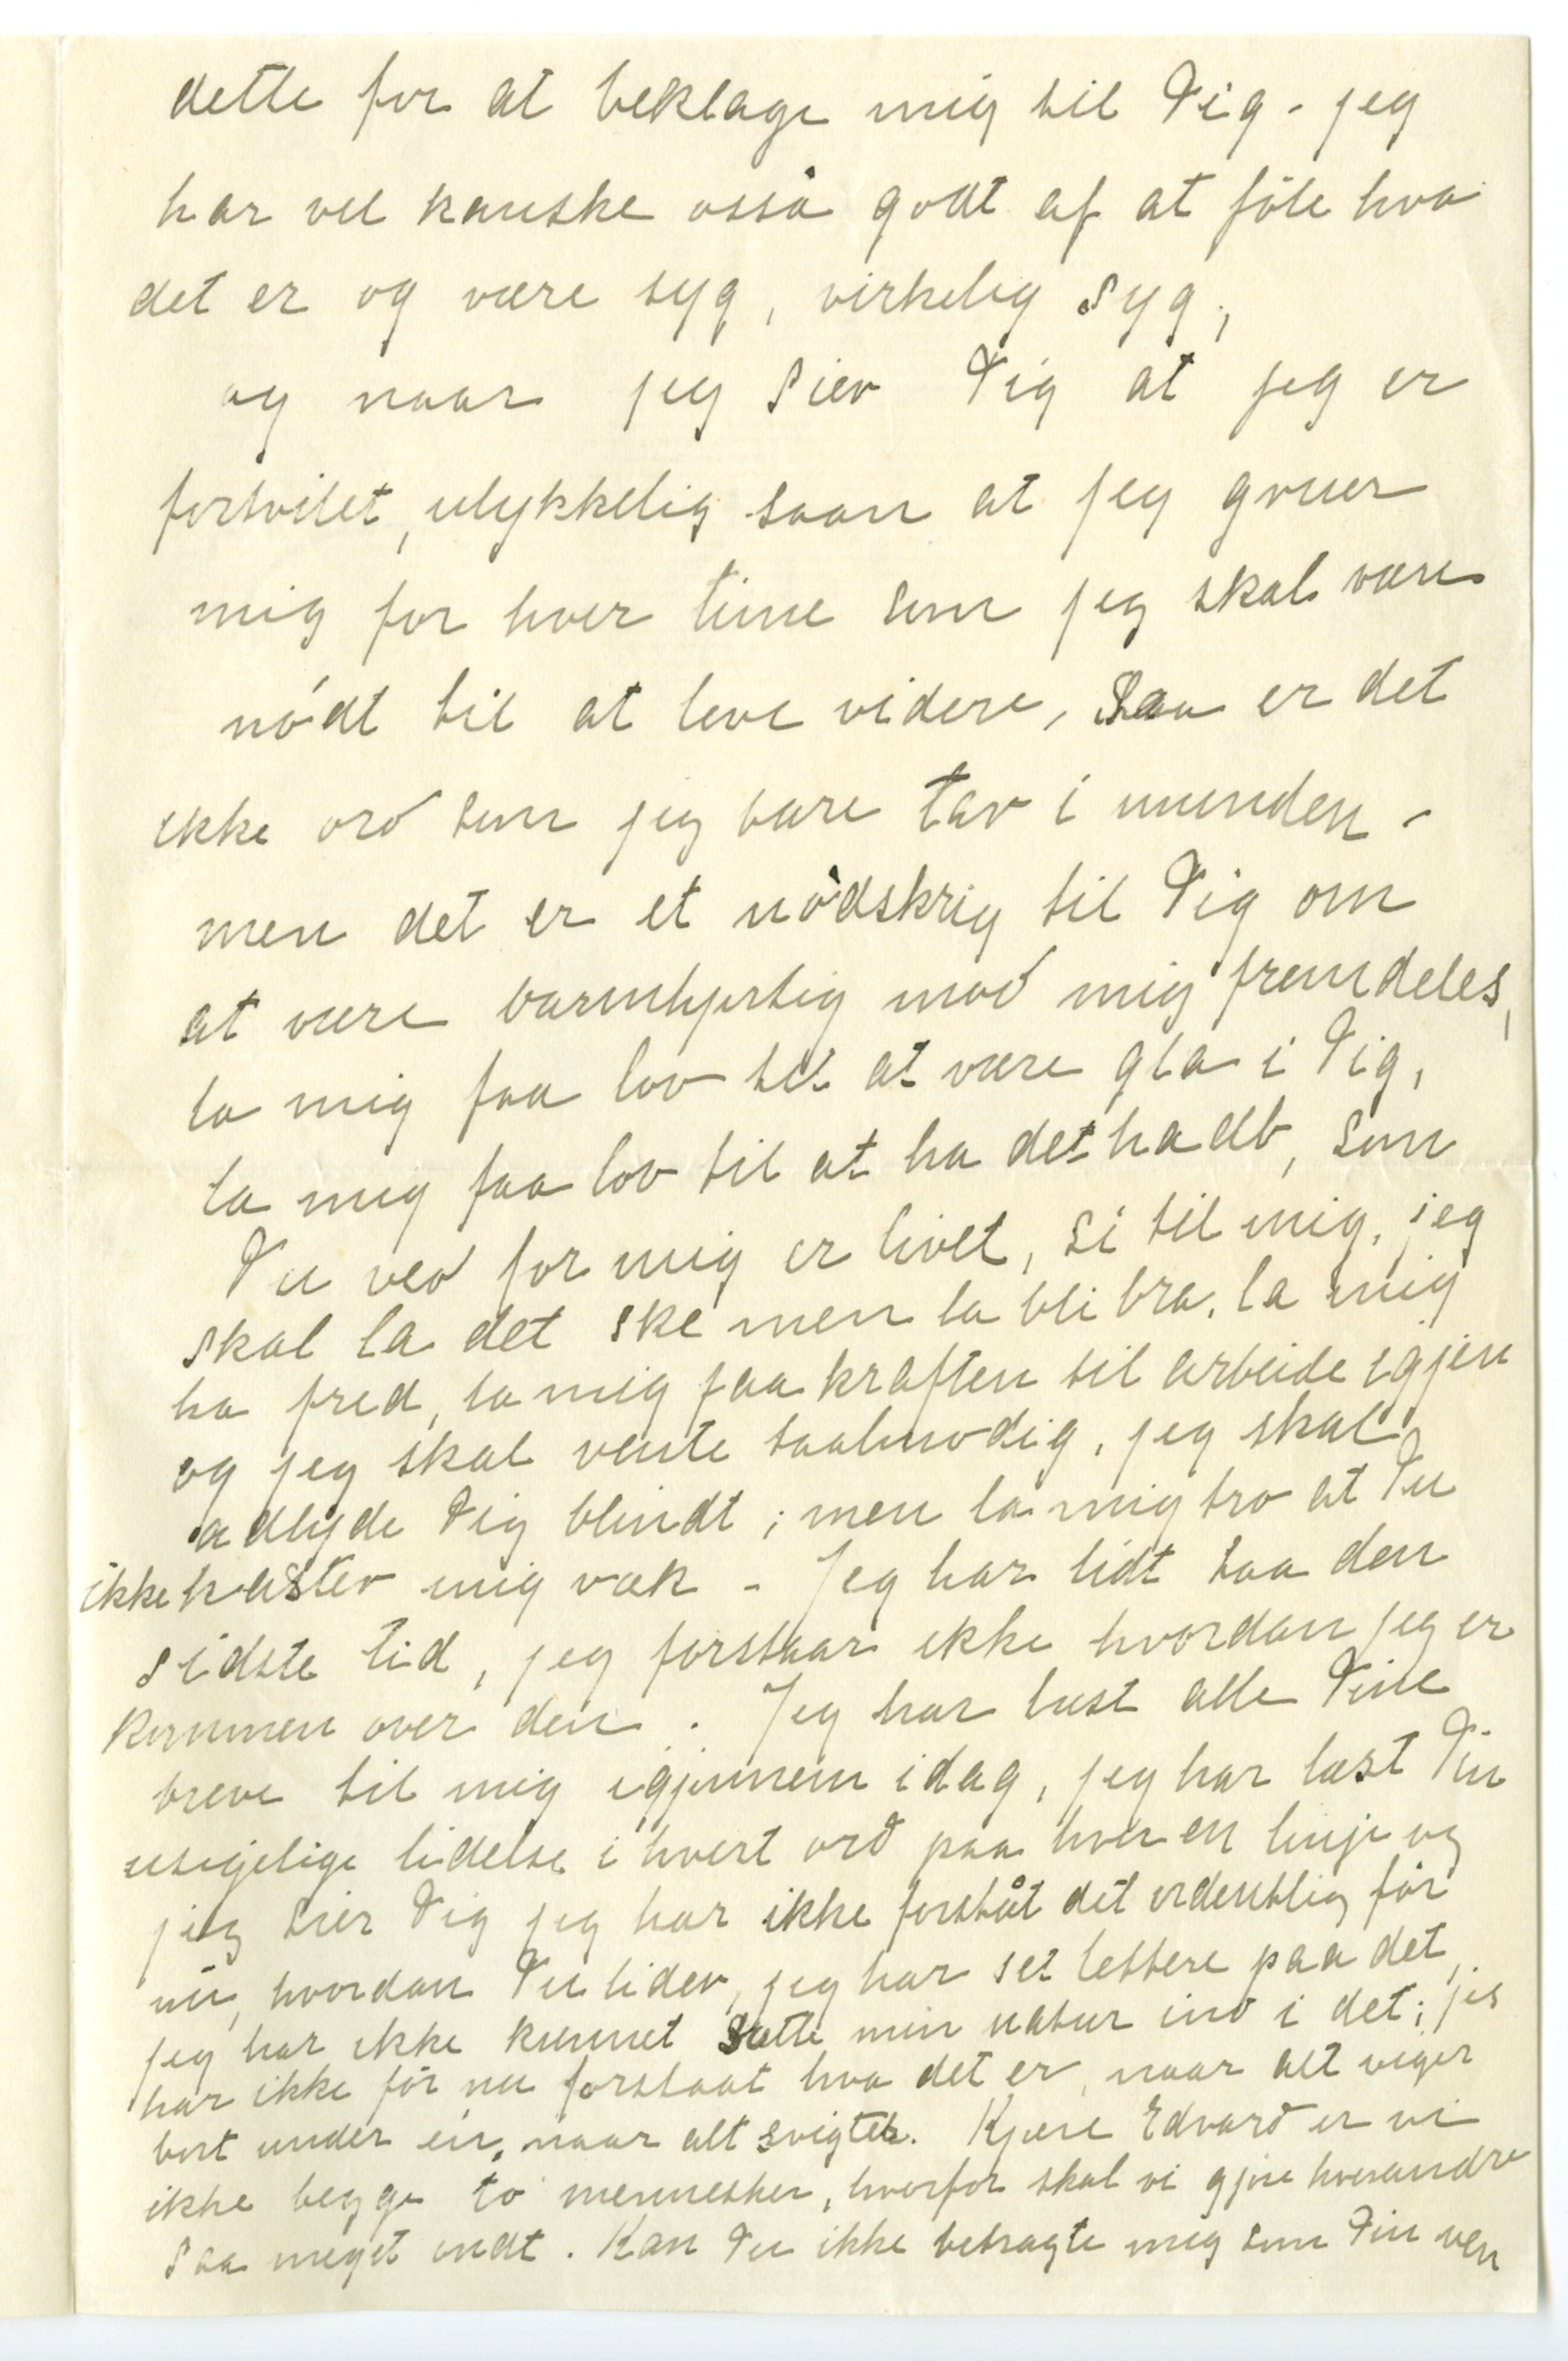 dette for at beklage mig til Dig - jeg
har vel kanske osså godt af at föle hva
det er og være syg, virkelig syg,
og naar jeg sier Dig at jeg er
fortvilet, ulykkelig saan at jeg gruer
mig for hver time som jeg skal være
nödt til at leve videre, saa er det
ikke ord som jeg bare tar i munden -
men det er et nödskrig til Dig om
at være barmhjertig mod mig fremdeles,
la mig faa lov til at være gla i Dig,
la mig faa lov til at ha det haab, som
Du ved for mig er livet, si til mig, jeg
skal la det ske men la bli bra, la mig
ha fred, la mig faa kraften til arbeide igjen
og jeg skal vente taalmodig, jeg skal
adlyde Dig blindt; men la mig tro at Du
ikke kaster mig væk - Jeg har lidt saa den
sidste tid, jeg forstaar ikke hvordan jeg er
kommen over den. Jeg har læst alle Dine
breve til mig igjennem idag, jeg har læst Din
usigelige lidelse i hvert ord paa hver en linje og
jeg sier Dig jeg har ikke forståt det ordentlig för
nu, hvordan Du lider, jeg har set lettere paa det,
jeg har ikke kunnet sætte min natur ind i det; jeg
har ikke för nu forstaat hva det er, naar alt viger
bort under én, naar alt svigter. Kjære Edvard er vi
ikke begge to mennesker, hvorfor skal vi gjöre hverandre
saa meget ondt. Kan Du ikke betragte mig som Din ven